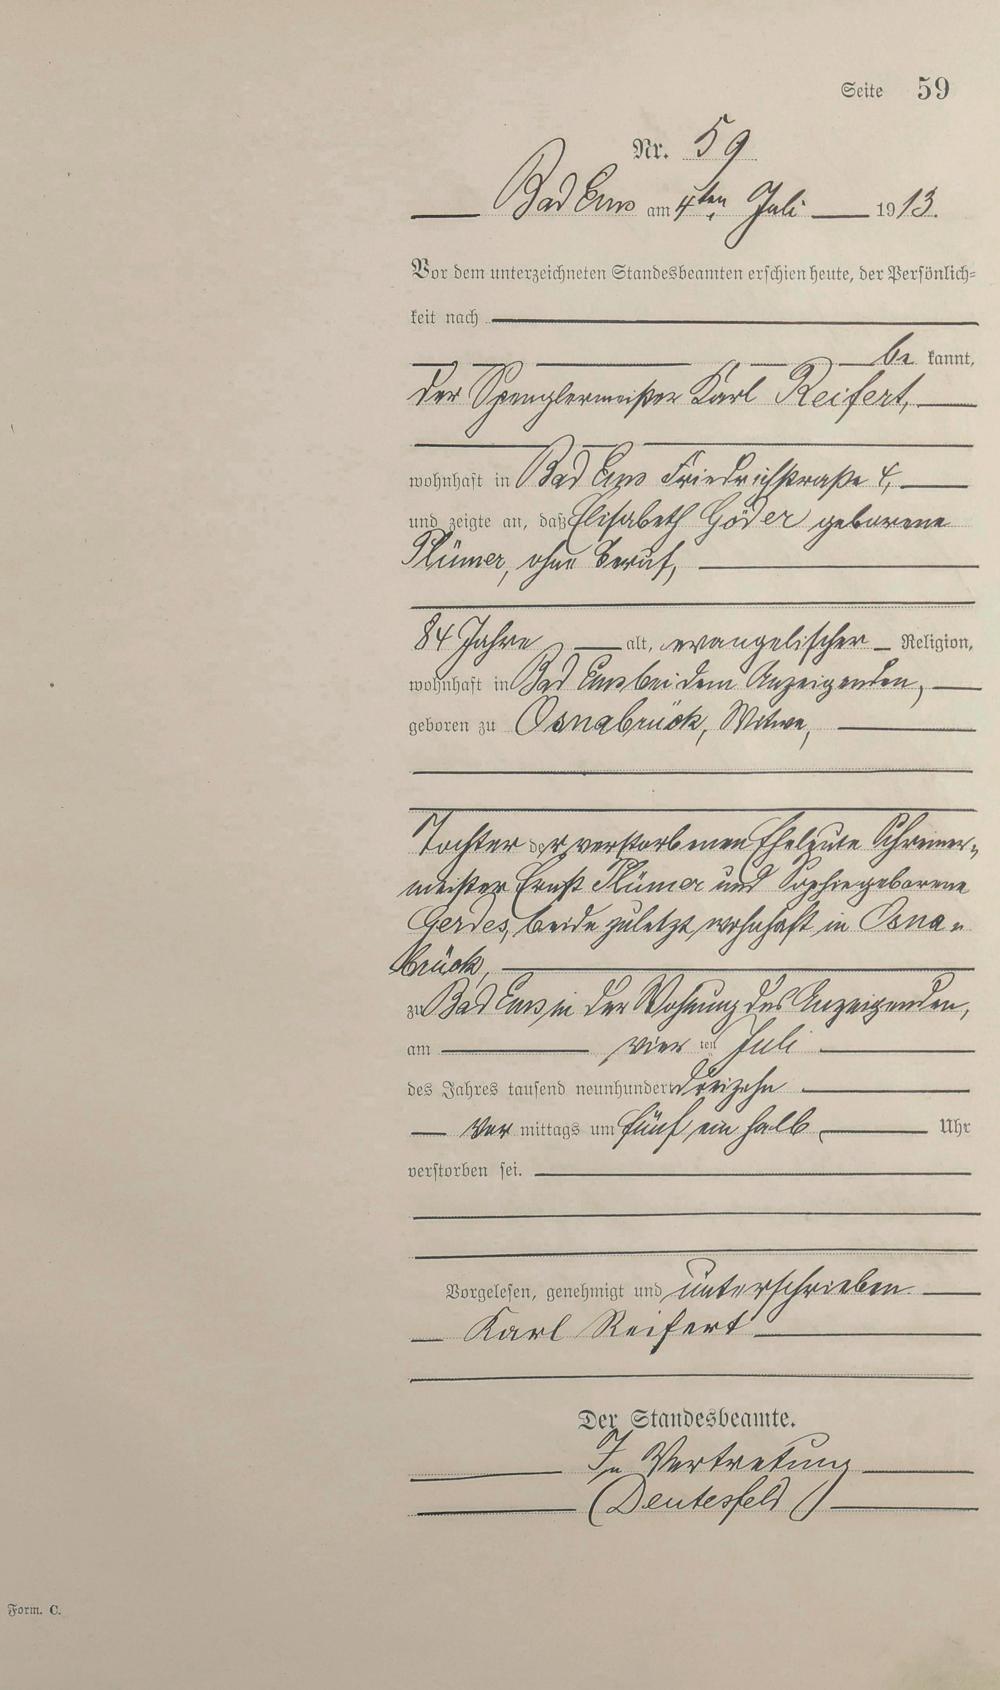 Seite 59
Nr. 59
Bad Ems am 4ten Juli 1913.
Vor dem unterzeichneten Standesbeamten erschien heute, der Persönlich=
keit nach
be kannt,
der Spenglermeister Karl Reifert,
wohnhaft in Bad Ems Friedrichstraße 4,
und zeigte an, daß Elisabeth Göder geborene
Plümer, ohne Beruf,
84 Jahre alt, evangelischer Religion,
wohnhaft in Bad Ems bei dem Anzeigenden,
geboren zu Osnabrück, Witwe,
Tochter der verstorbenen Eheleute Schreiner=
meister Ernst Plümer und Sophie geborene
Gerdes, beide zuletzt wohnhaft in Osna=
brück,
zu Bad Ems in der Wohnung des Anzeigenden,
am vier ten Juli
des Jahres tausend neunhundert dreizehn
Vor mittags um fünf ein halb Uhr
verstorben sei.
Vorgelesen, genehmigt und unterschrieben
Karl Reifert
Der Standesbeamte.
In Vertretung
(Deutesfeld)
Form. C.